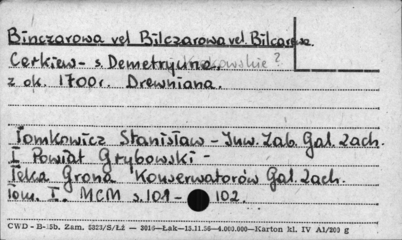 Binczarowa vel Bilczarowa vel. Bilcarowa.
Cerkiew - s. Demetryusa. Krakowskie?
z ok. 1700 r. Drewniana.
Tomkowicz Stanisław - Inw. Zab. Gal. Zach.
I Powiat Grybowski -
Teka Grona Konserwatorów Gal. Zach.
Tom. I. MCM s. 101 - 102.
CWD - B-15b. Zam. 5823/S/Łż — 2016—Łak—15.11.56—4.000.000—Karton kl. IV A1/200 g